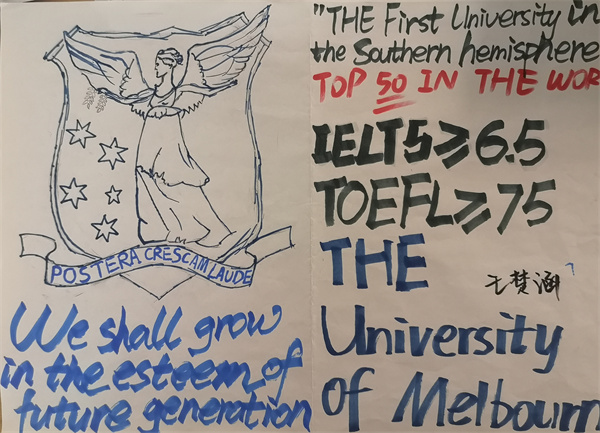 POSTERA CRESCAM LAUDE
We shall grow
in the esteem of
future generation
"THE First University in
the Southern hemisphere
TOP 50 IN THE WOR
IELTS≥6.5
TOEFL≥75
THE
王梵涵
University
of Melbourn